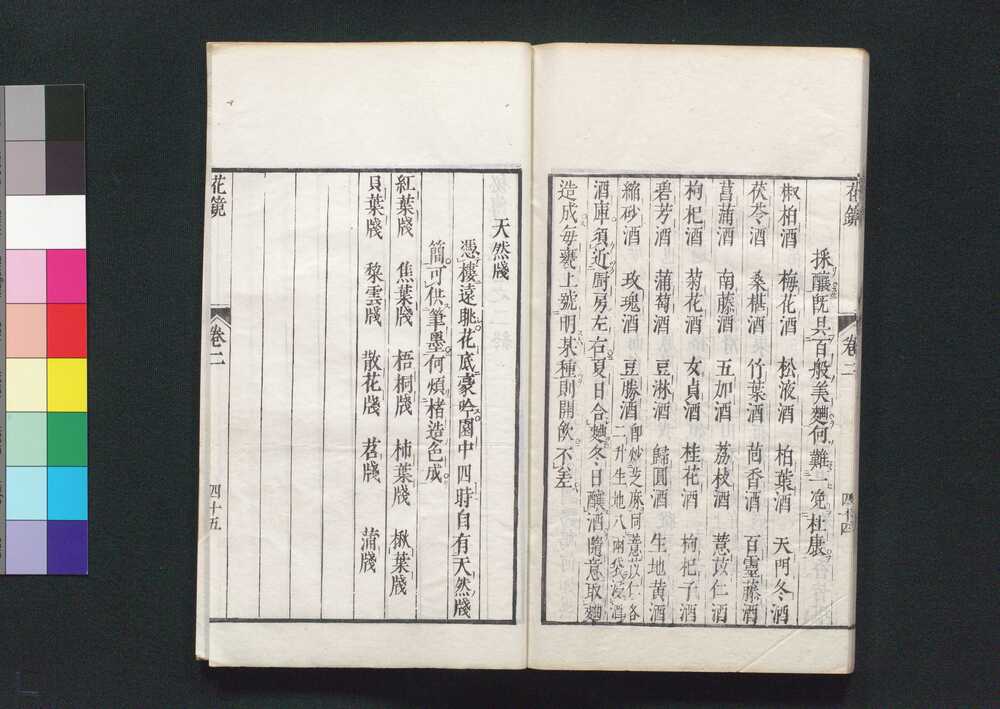 花鏡
卷二
四十四
採釀既具百般美麯何難一免杜康
椒柏酒 梅花酒 松液酒 柏葉酒 天門冬酒
茯苓酒 桑椹酒 竹葉酒 茴香酒 百靈藤酒
菖蒲酒 南藤酒 五加酒 荔枝酒 薏苡仁酒
枸杞酒 菊花酒 女貞酒 桂花酒 枸杞子酒
碧芳酒 蒲萄酒 豆淋酒 歸圓酒 生地黄酒
縮砂酒 玫瑰酒 豆勝酒 即炒芝麻同薏苡仁各
二升生地八兩袋浸酒
酒庫須近厨房左右夏日合麯冬日釀酒隨意取麯
造成每甕上號明某種則開飲不差
天然牋
憑樓遠眺花底豪吟園中四時自有天然牋
簡可供筆墨何煩楮造色成
紅葉牋 焦葉牋 梧桐牋 柿葉牋 楸葉牋
貝葉牋 黎雲牋 散花牋 苔牋 蒲牋
花鏡
卷二
四十五